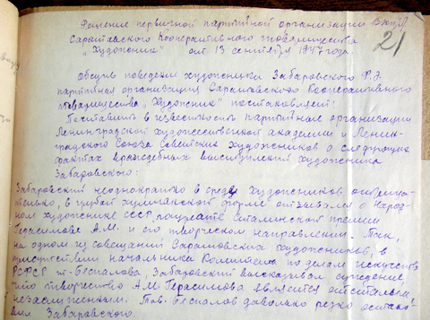 Решение первичной партийной организации
Саратовского Кооперативного товарищества
"Художник" от 13 сентября 1947 года.
21
Обсудив поведение художника Забаровского Р.Э.
партийная организация Саратовского Кооперативного
товарищества "Художник" постановляет:
Поставить в известность партийные организации
Ленинградской художественной академии и Ленин-
градского Союза Советских художников о следующих
фактах враждебных выступлений художника
Забаровского:
Забаровский неоднократно в среде художников
в грубой хулиганской форме отзывался о Народ-
ном художнике СССР, лауреате сталинской премии
Герасимове А.М. и его творческом направлении. Так,
на одном из совещаний Саратовских художников, в
присутствии начальника Комитета по делам искусств
РСФСР т. Беспалова, Забаровский высказывал суждение,
что творчество А.М. Герасимова является
незаслуженным. Тов. Беспалов довольно резко
Забаровского.